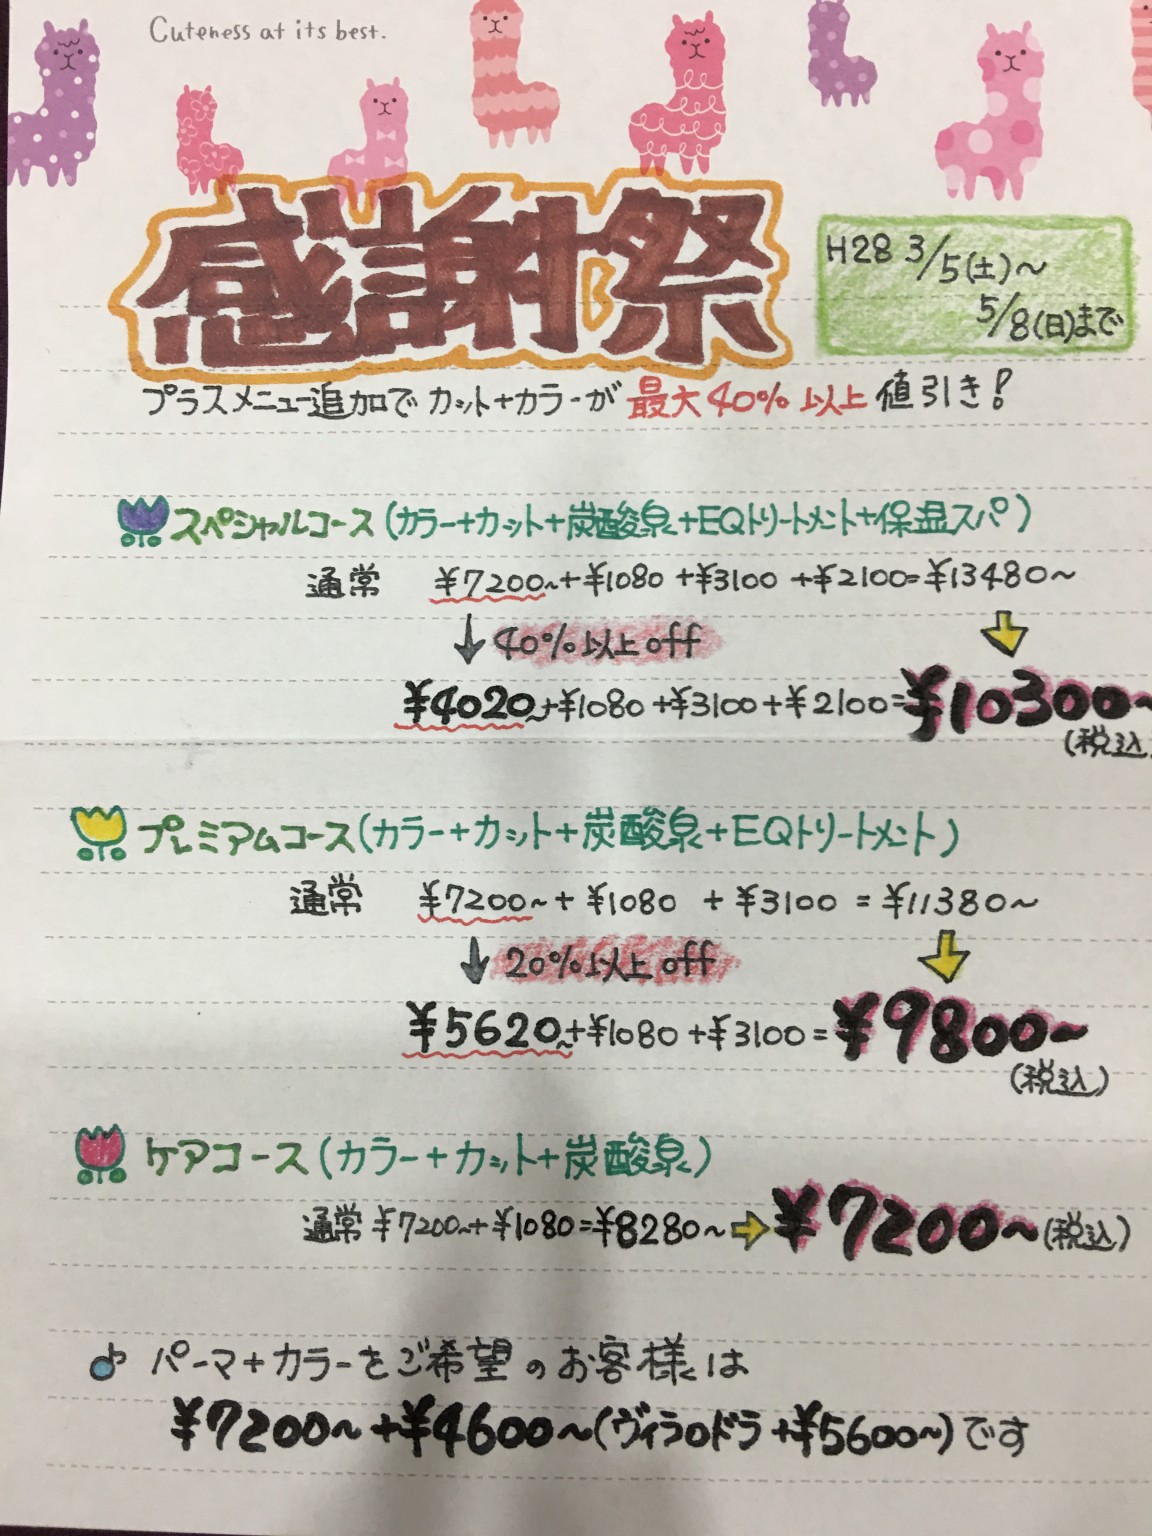 Cuteness at its best.
感謝祭
H28 3/5(土)〜
5/8(日)まで
プラスメニュー追加でカット+カラーが最大40%以上値引き!
スペシャルコース(カラー+カット+炭酸泉+EQトリートメント+保湿スパ)
通常 ¥7200〜+¥1080+¥3100+¥2100=¥13480〜
↓40%以上off
¥4020〜+¥1080+¥3100+¥2100=¥10300〜
(税込)
プレミアムコース(カラー+カット+炭酸泉+EQトリートメント)
通常 ¥7200〜+¥1080+¥3100=¥11380〜
↓20%以上off
¥5620〜+¥1080+¥3100=¥9800〜
(税込)
ケアコース(カラー+カット+炭酸泉)
通常¥7200〜+¥1080=¥8280〜⇨¥7200〜(税込)
パーマ+カラーをご希望のお客様は
¥7200〜+¥4600〜(ヴィラロドラ+¥5600〜)です